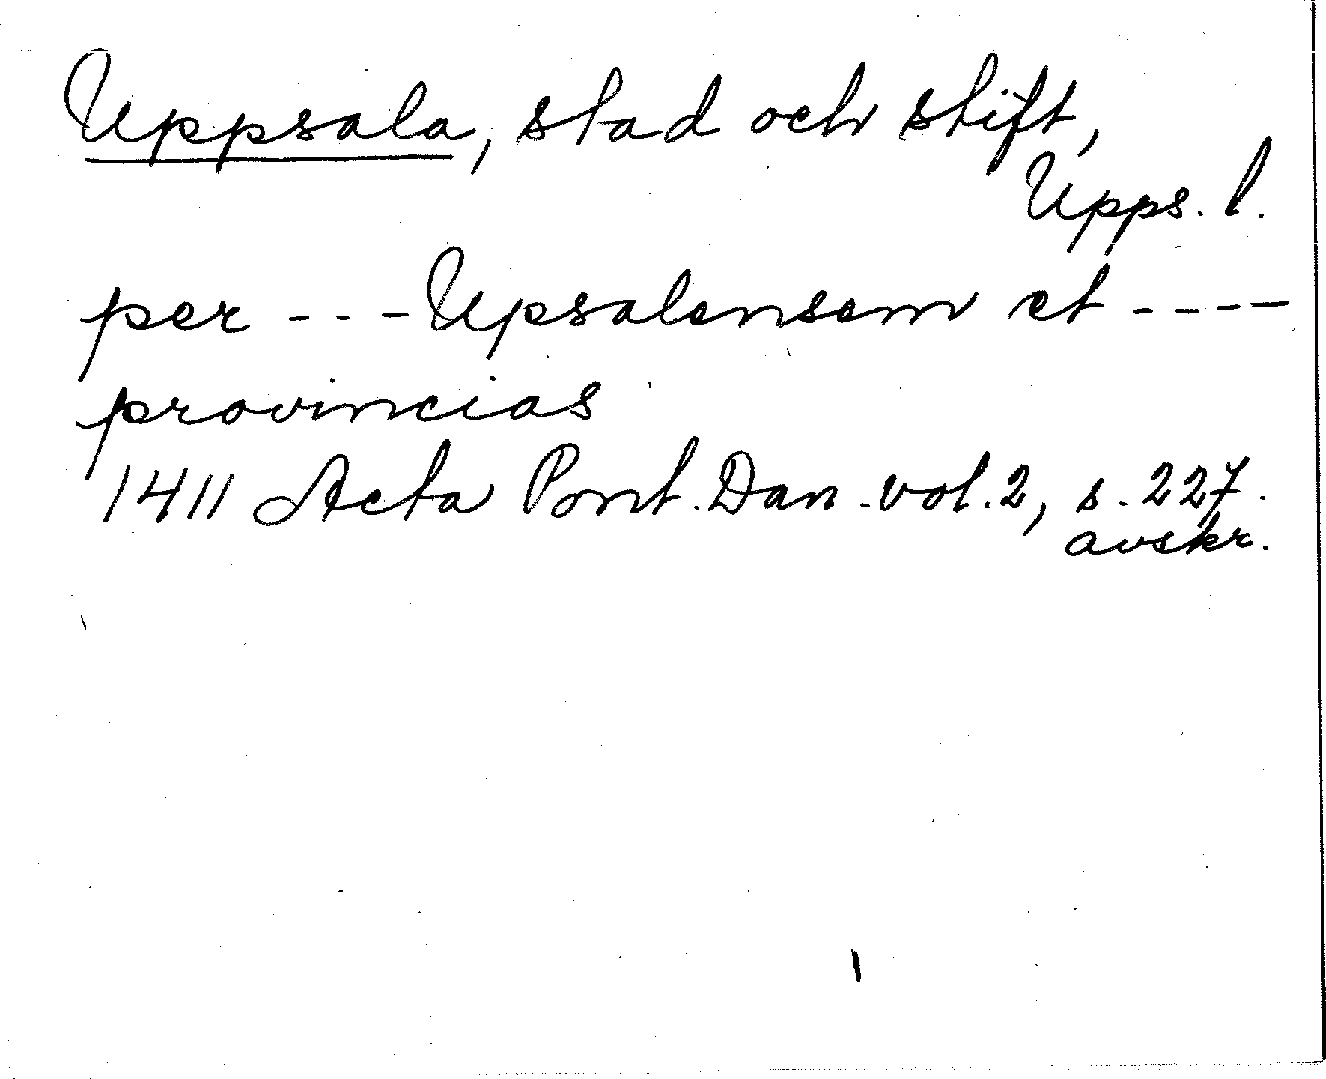 Uppsala, stad och stift,
Upps. l.
per --- Upsalensem et ----
provincias
1411 Acta Pont. Dan. vol. 2, s. 227.
avskr.